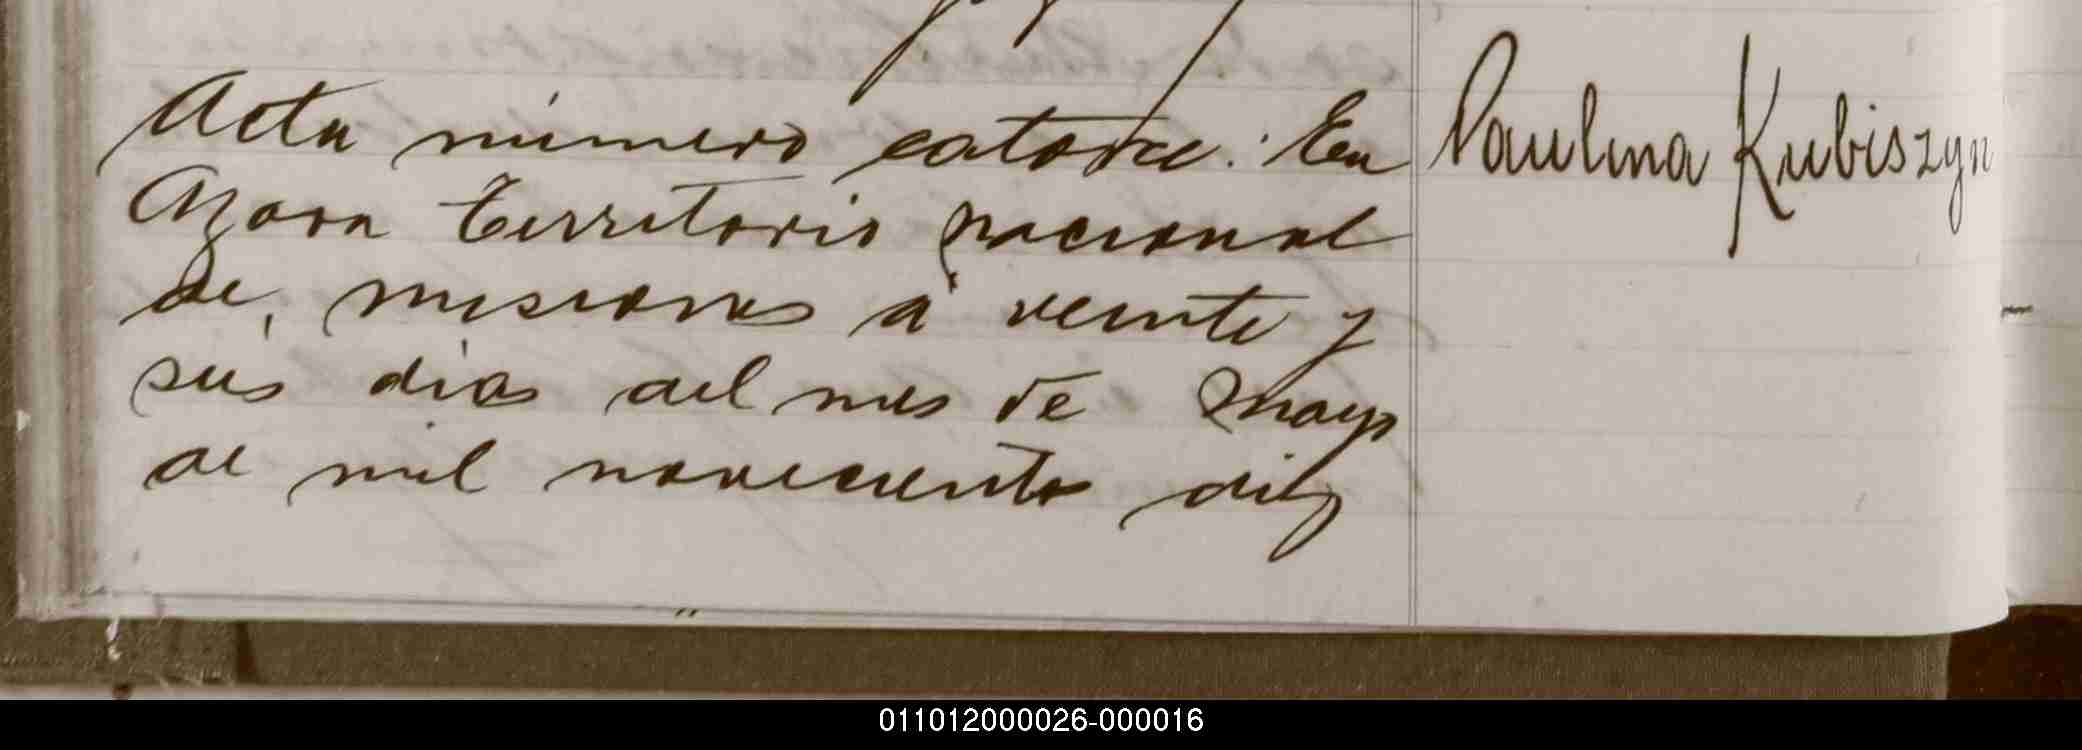 Acta número catorce. En
Azara Territorio nacional
de, misiones á veinte y
seis dias del mes de Mayo
de mil novecientos diez
Paulina Kubiszyn
011012000026-000016